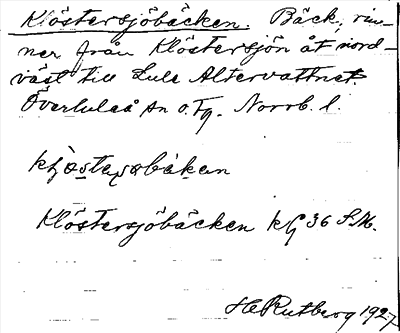 Klöstersjöbäcken. Bäck, rin-
ner från Klöstersjön åt nord-
väst till Lule Altervattnet.
Överluleå sn o. Tg. Norrb. l.
Klöstersjöbäcken kG 36 S.M.
H Rutberg 1927